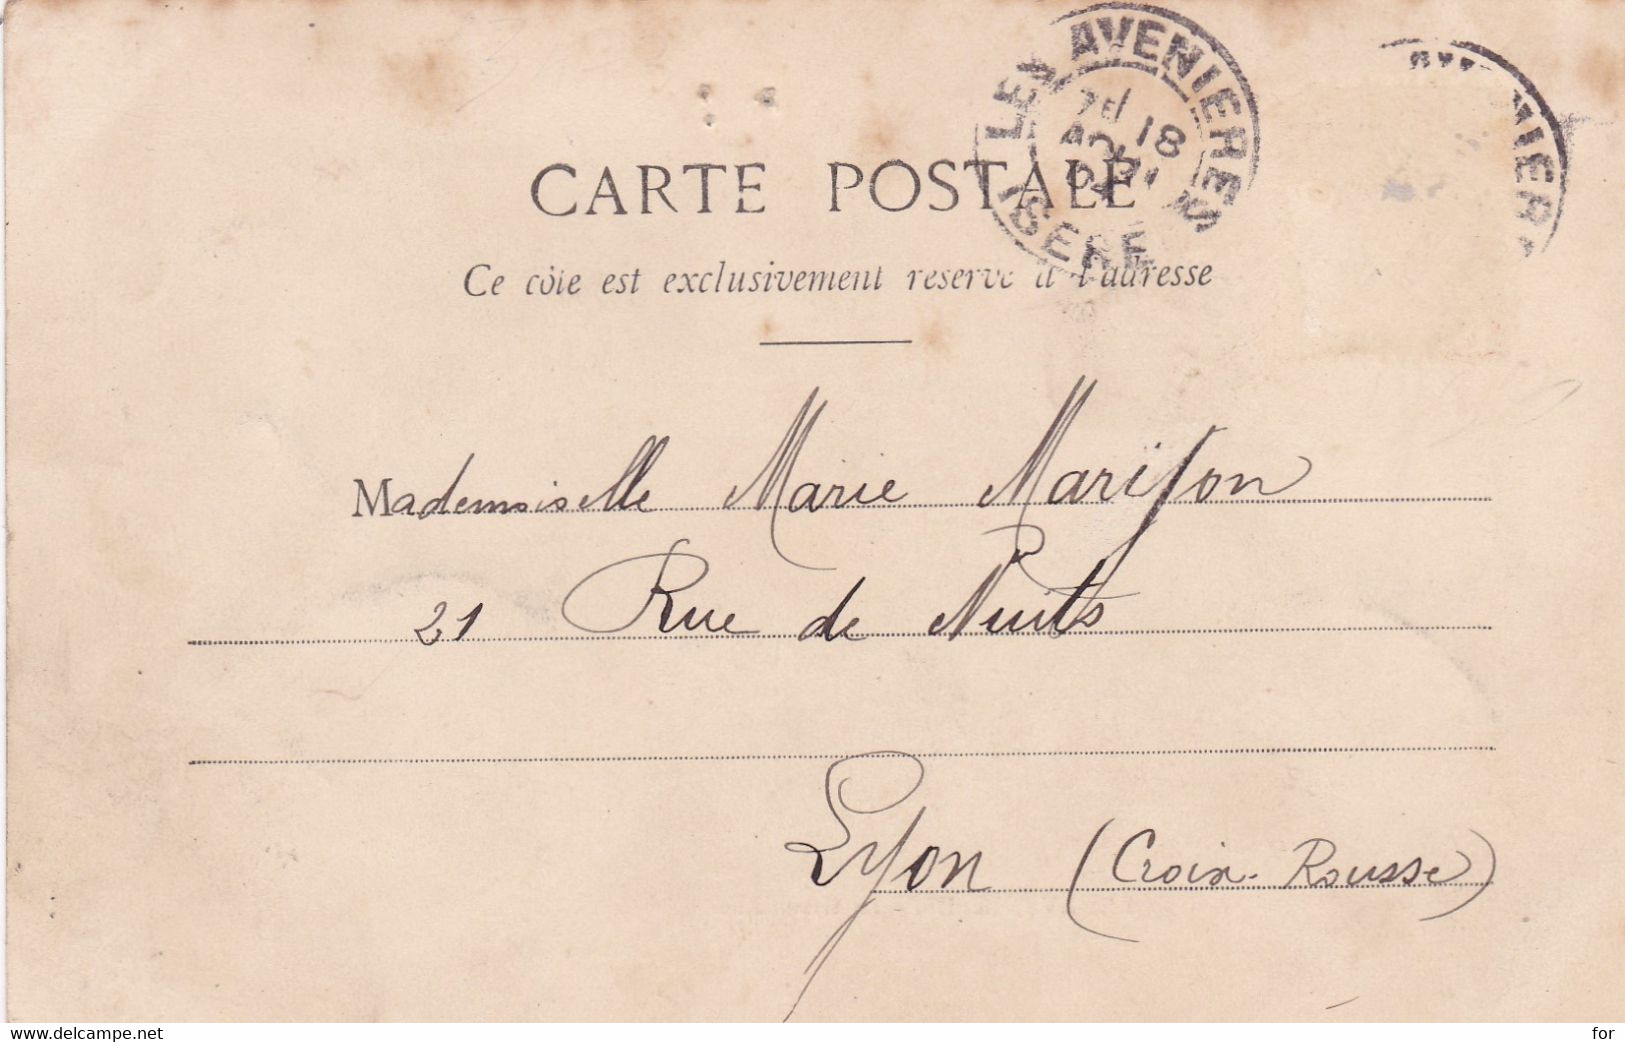 LES AVENIERES
7E 18
ISERE
CARTE POSTALE
Ce côté est exclusivement réservé à l'adresse
Mademoiselle Marie
21 Rue de Nuits
Lyon (Croix-Rousse)
www.delcampe.net
for